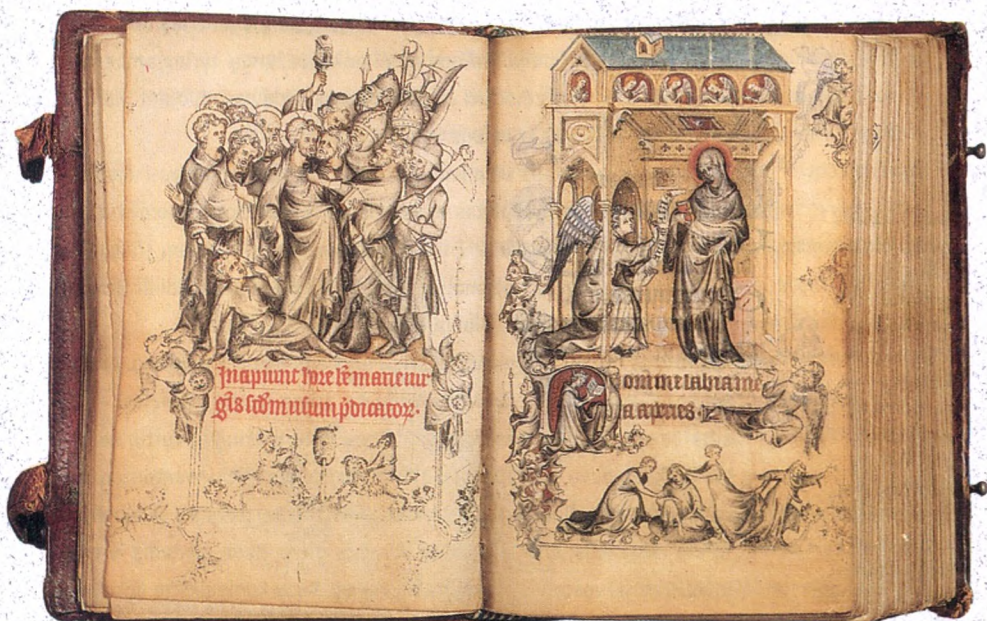 Incipiunt hore bẽ marie uir
gĩs scðm usum p̃dicatoꝝ.
Domine labia me
a aperies.